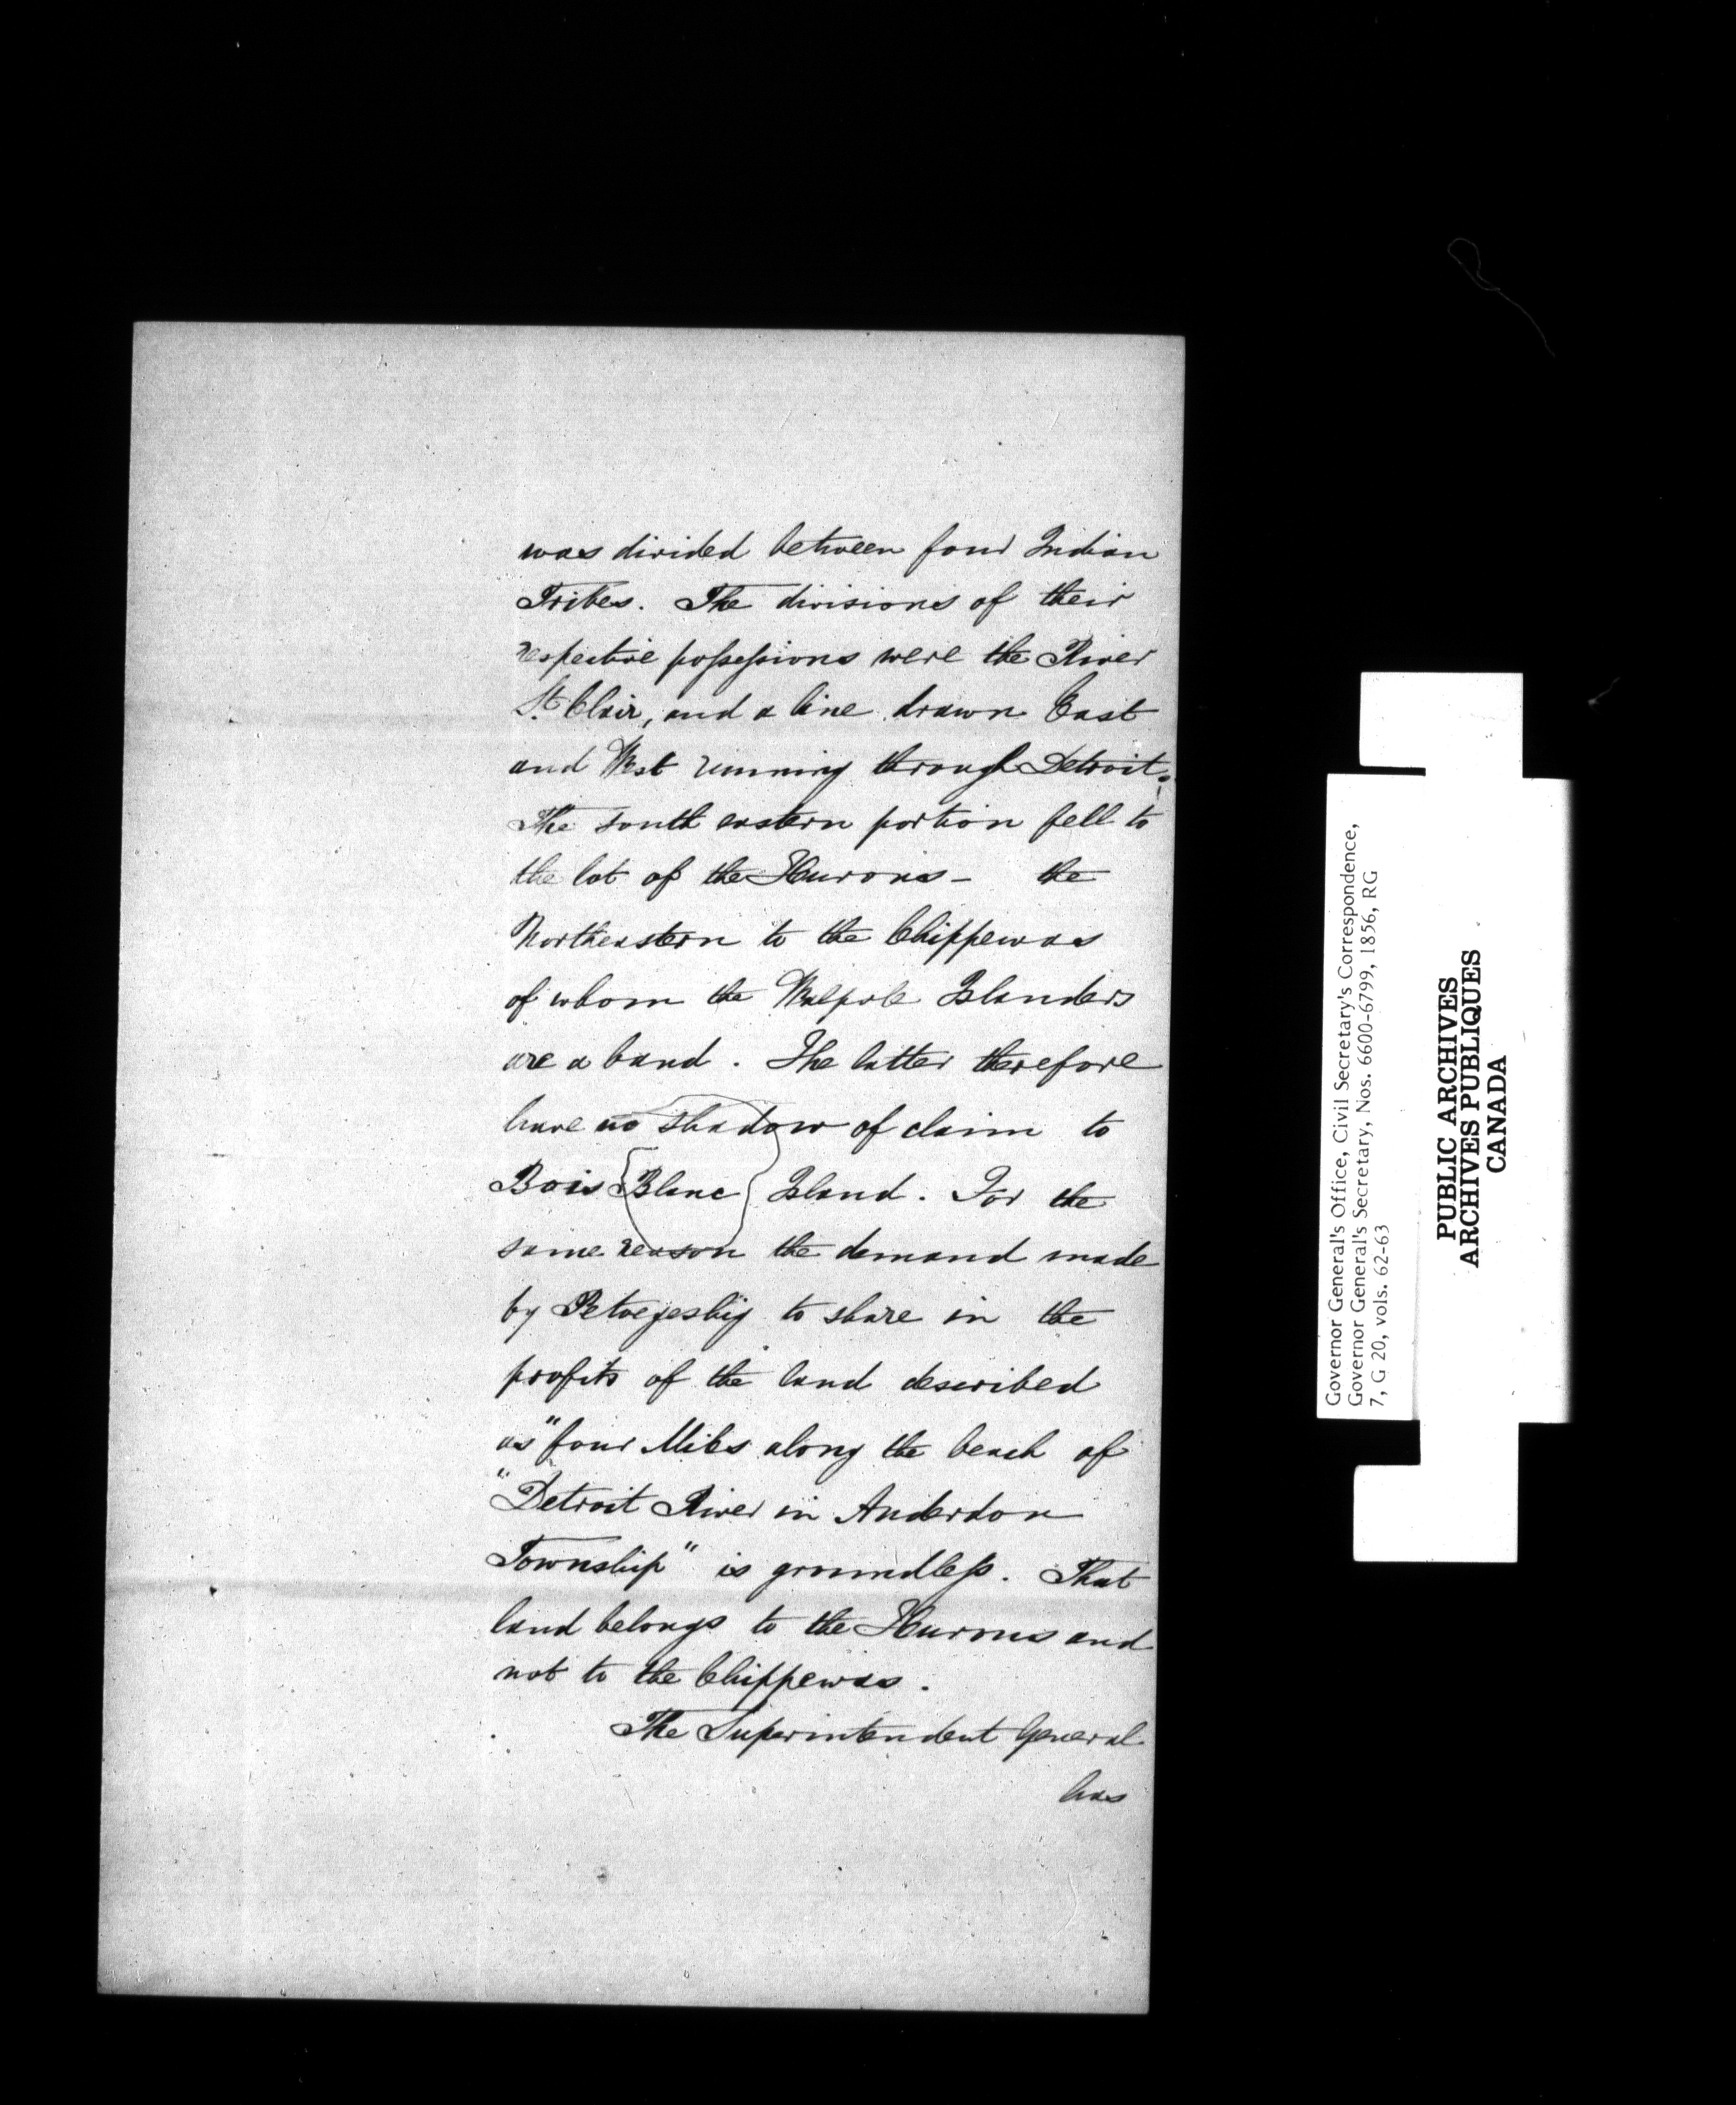 was divided between four Indian
Tribes. The divisions of their
respective possessions were the River
St. Clair, and a line drawn East
and West running through Detroit.
The south eastern portion fell to
the lot of the Hurons - the
Northeastern to the Chippewas
of whom the Walpole Islanders
are a band. The latter therefore
have no shadow of claim to
Bois Blanc Island. For the
same reason the demand made
by Petwegeshig to share in the
profits of the land described
as "four Miles along the beach of
"Detroit River in Anderdon
Township" is groundless. That
land belongs to the Hurons and
not to the Chippewas.
The Superintendent General
has
Governor General's Office, Civil Secretary's Correspondence,
Governor General's Secretary, Nos. 6600-6799, 1856, RG
7, G 20, vols. 62-63
PUBLIC ARCHIVES
ARCHIVES PUBLIQUES
CANADA